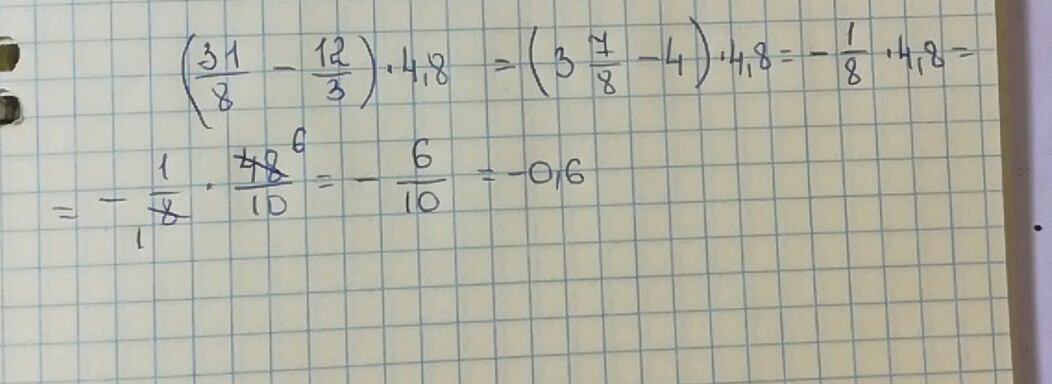 (31/8 - 12/3) · 4,8 = (3 7/8 - 4) · 4,8 = - 1/8 · 4,8 =
= - 1/8 1 · 48 6/10 = - 6/10 = -0,6